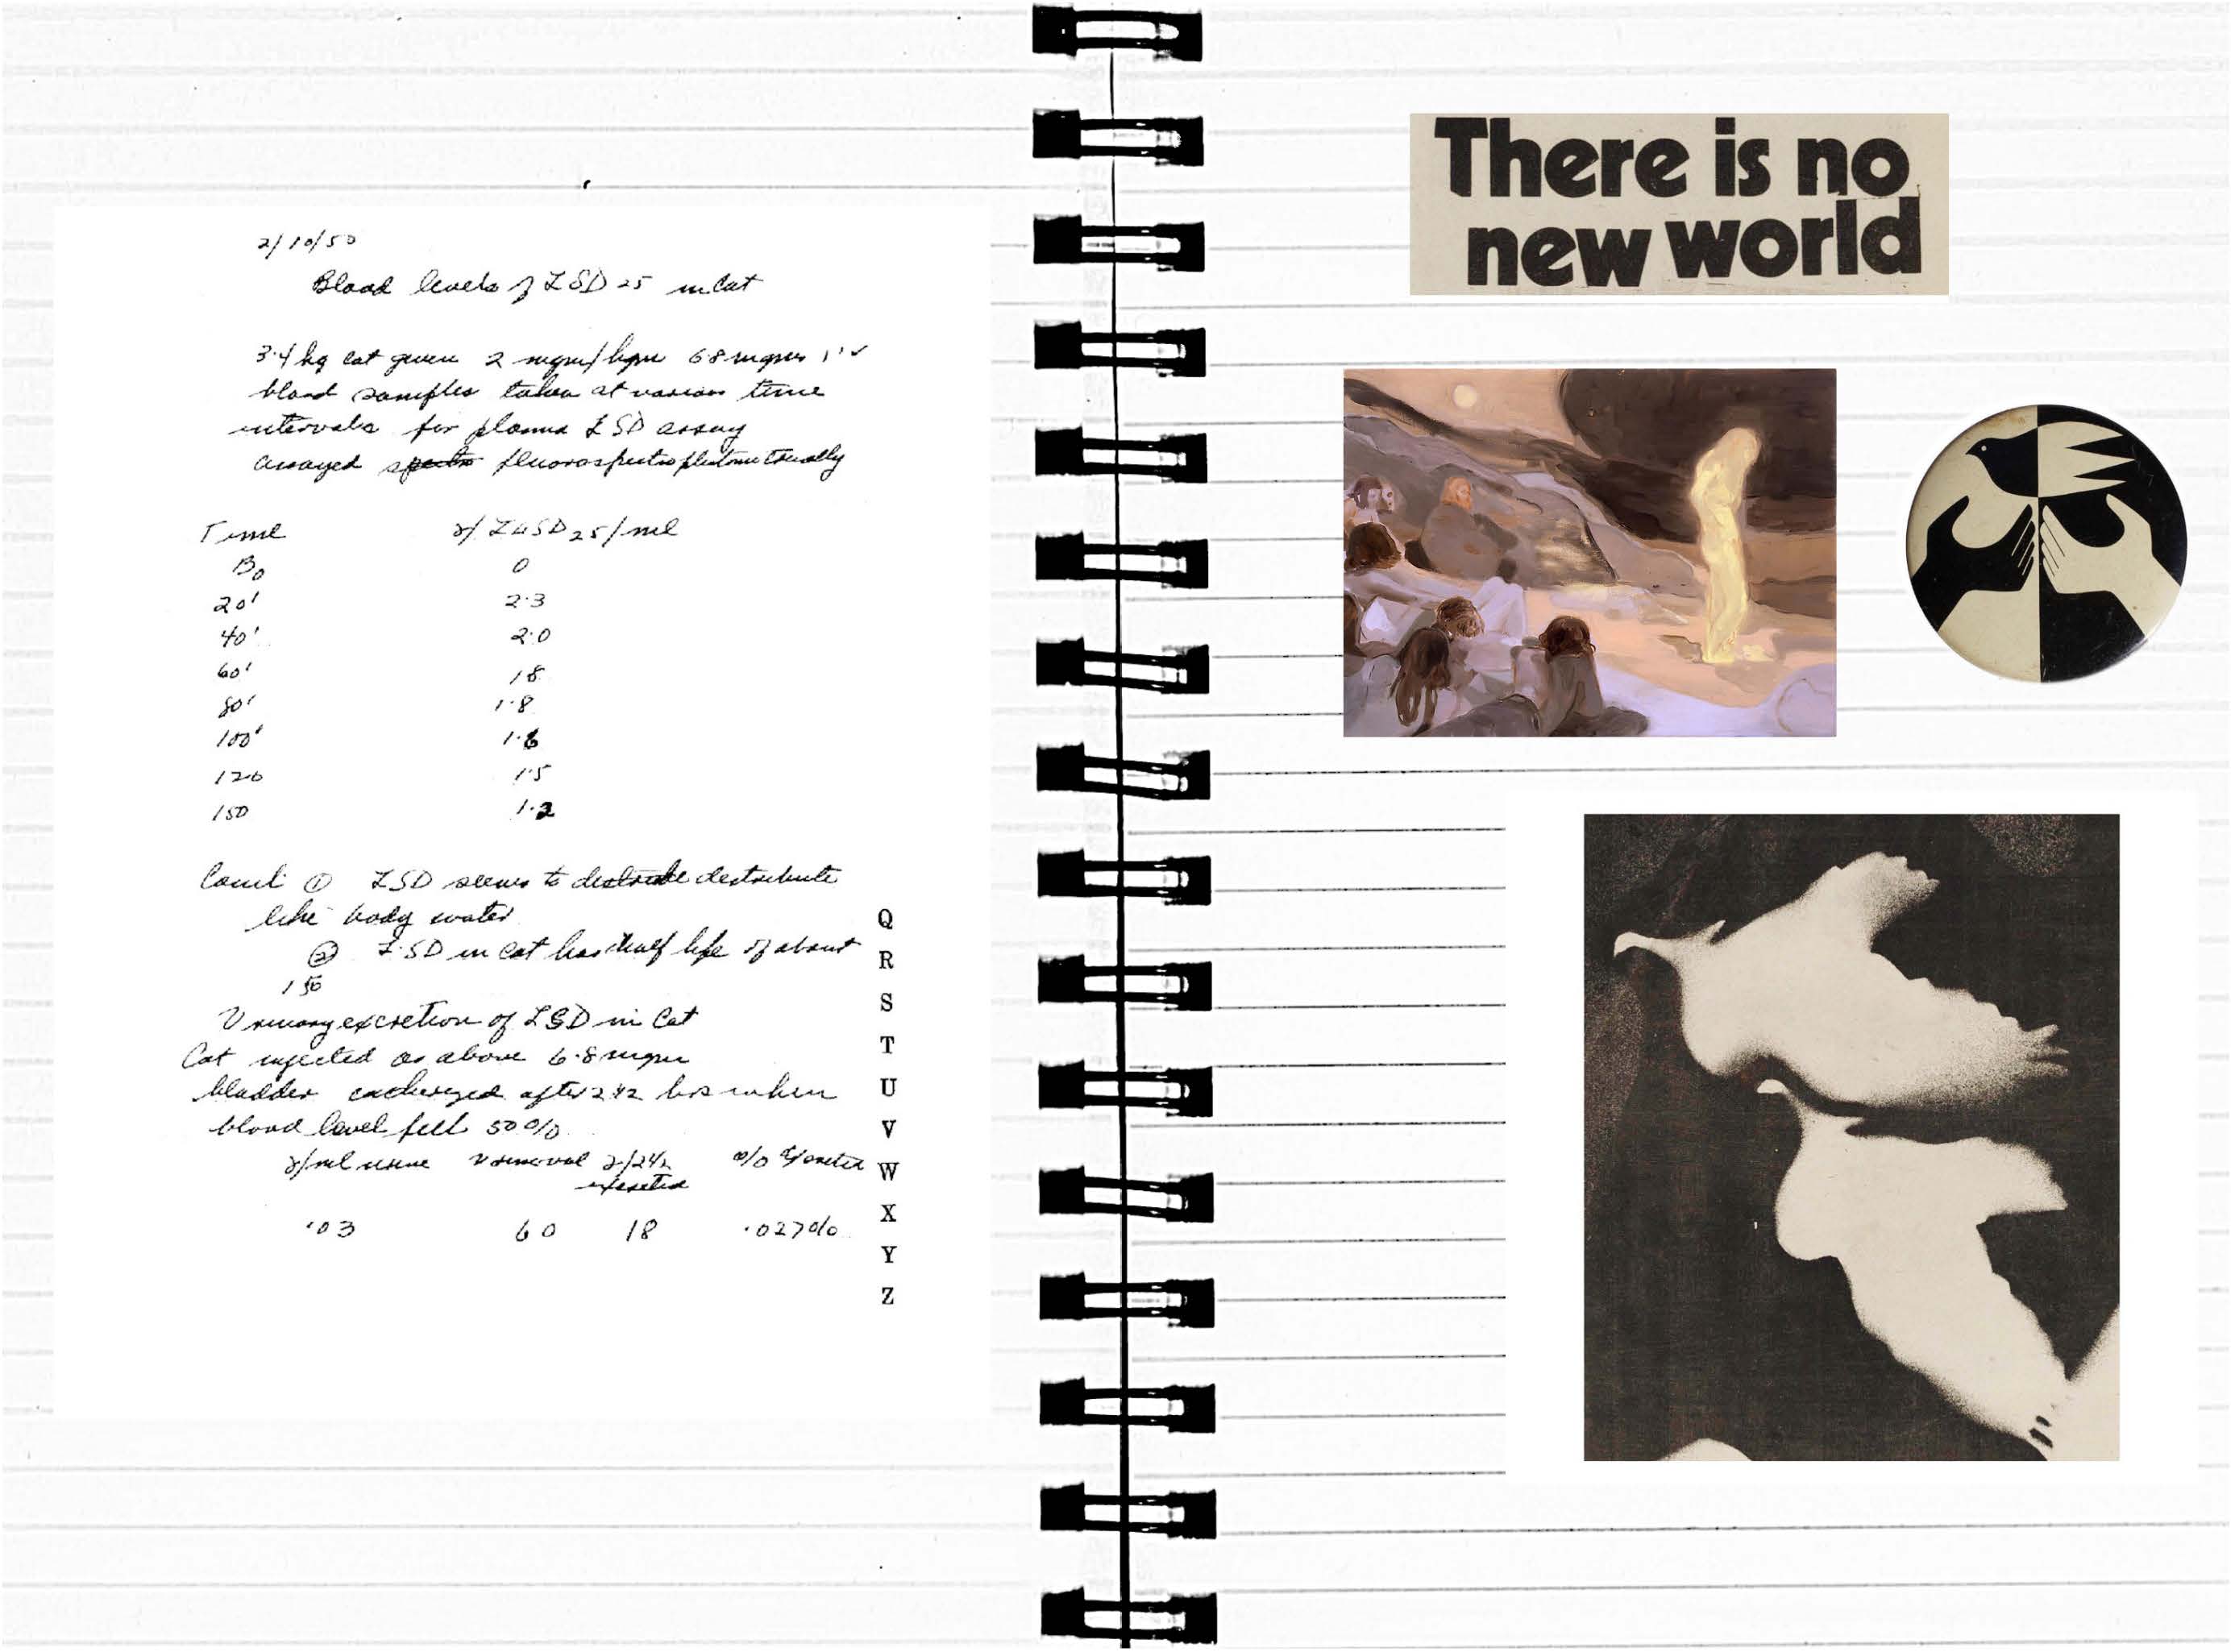 2/10/50
Blood levels of LSD 25 in Cat
3.4 kg cat given 2 mgm/kgm 6.8 mgms
blood samples taken at various time
intervals for plasma LSD assay
assayed spectro fluorospectrophotometrically
Time γ/LSD25/ml
B0 0
20' 2.3
40' 2.0
60' 1.8
80' 1.8
100' 1.6
120 1.5
150 1.2
① LSD seems to distribute
like body water
② LSD in Cat has half life of about
Urinary excretion of LSD in Cat
Cat injected as above 6.8 mgm
bladder after 2 1/2 hrs when
blood level fell 50%
γ/ml urine
.03 60 18 .027%
Q
R
S
T
U
V
W
X
Y
Z
There is no
new world